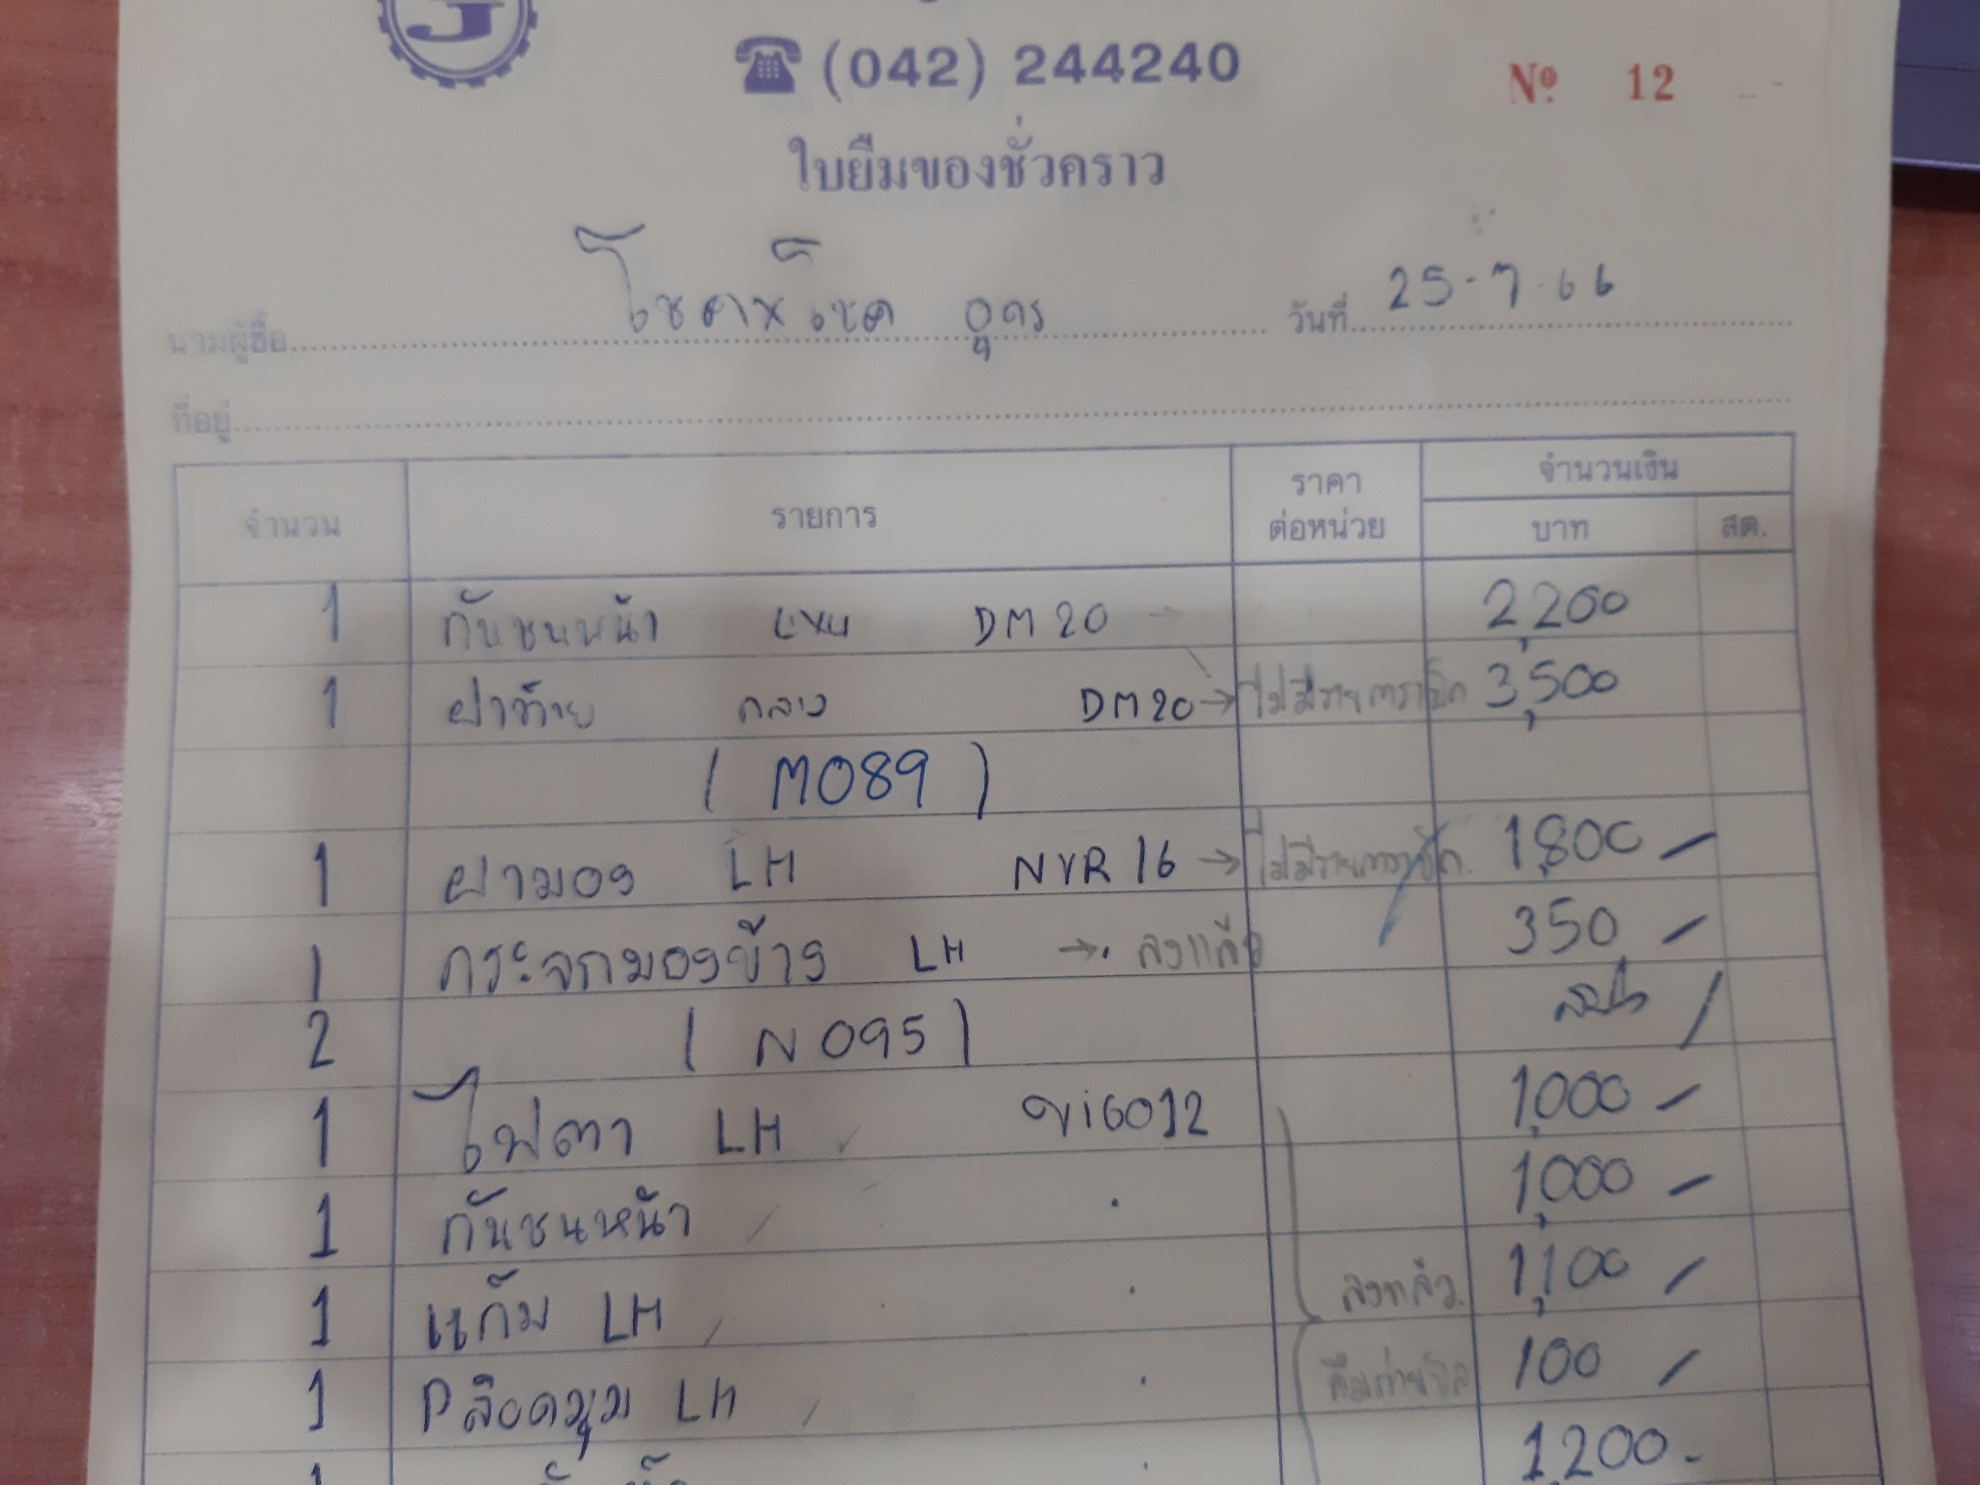 (042) 244240
Nº 12
ใบยืมของชั่วคราว
นามผู้ซื้อ โชคพิเชค อุดร วันที่ 25-7-66
ที่อยู่
จำนวน รายการ ราคาต่อหน่วย จำนวนเงิน บาท สต.
1 กันชนหน้า DM20 2,200
1 ฝาท้าย กลาง DM20 → ไม่มีรายการเบิก 3,500
(M089)
1 ฝามอง LH NVR16 → ไม่มีรายการเบิก 1,800 -
1 กระจกมองข้าง LH → ลงแล้ว 350 -
2 (N095)
1 ไฟตา LH ViGO12 1,000 -
1 กันชนหน้า 1,000 -
1 แก้ม LH ลงแล้ว. 1,100 -
1 Pลือคมุม LH 100 -
1 1,200 -